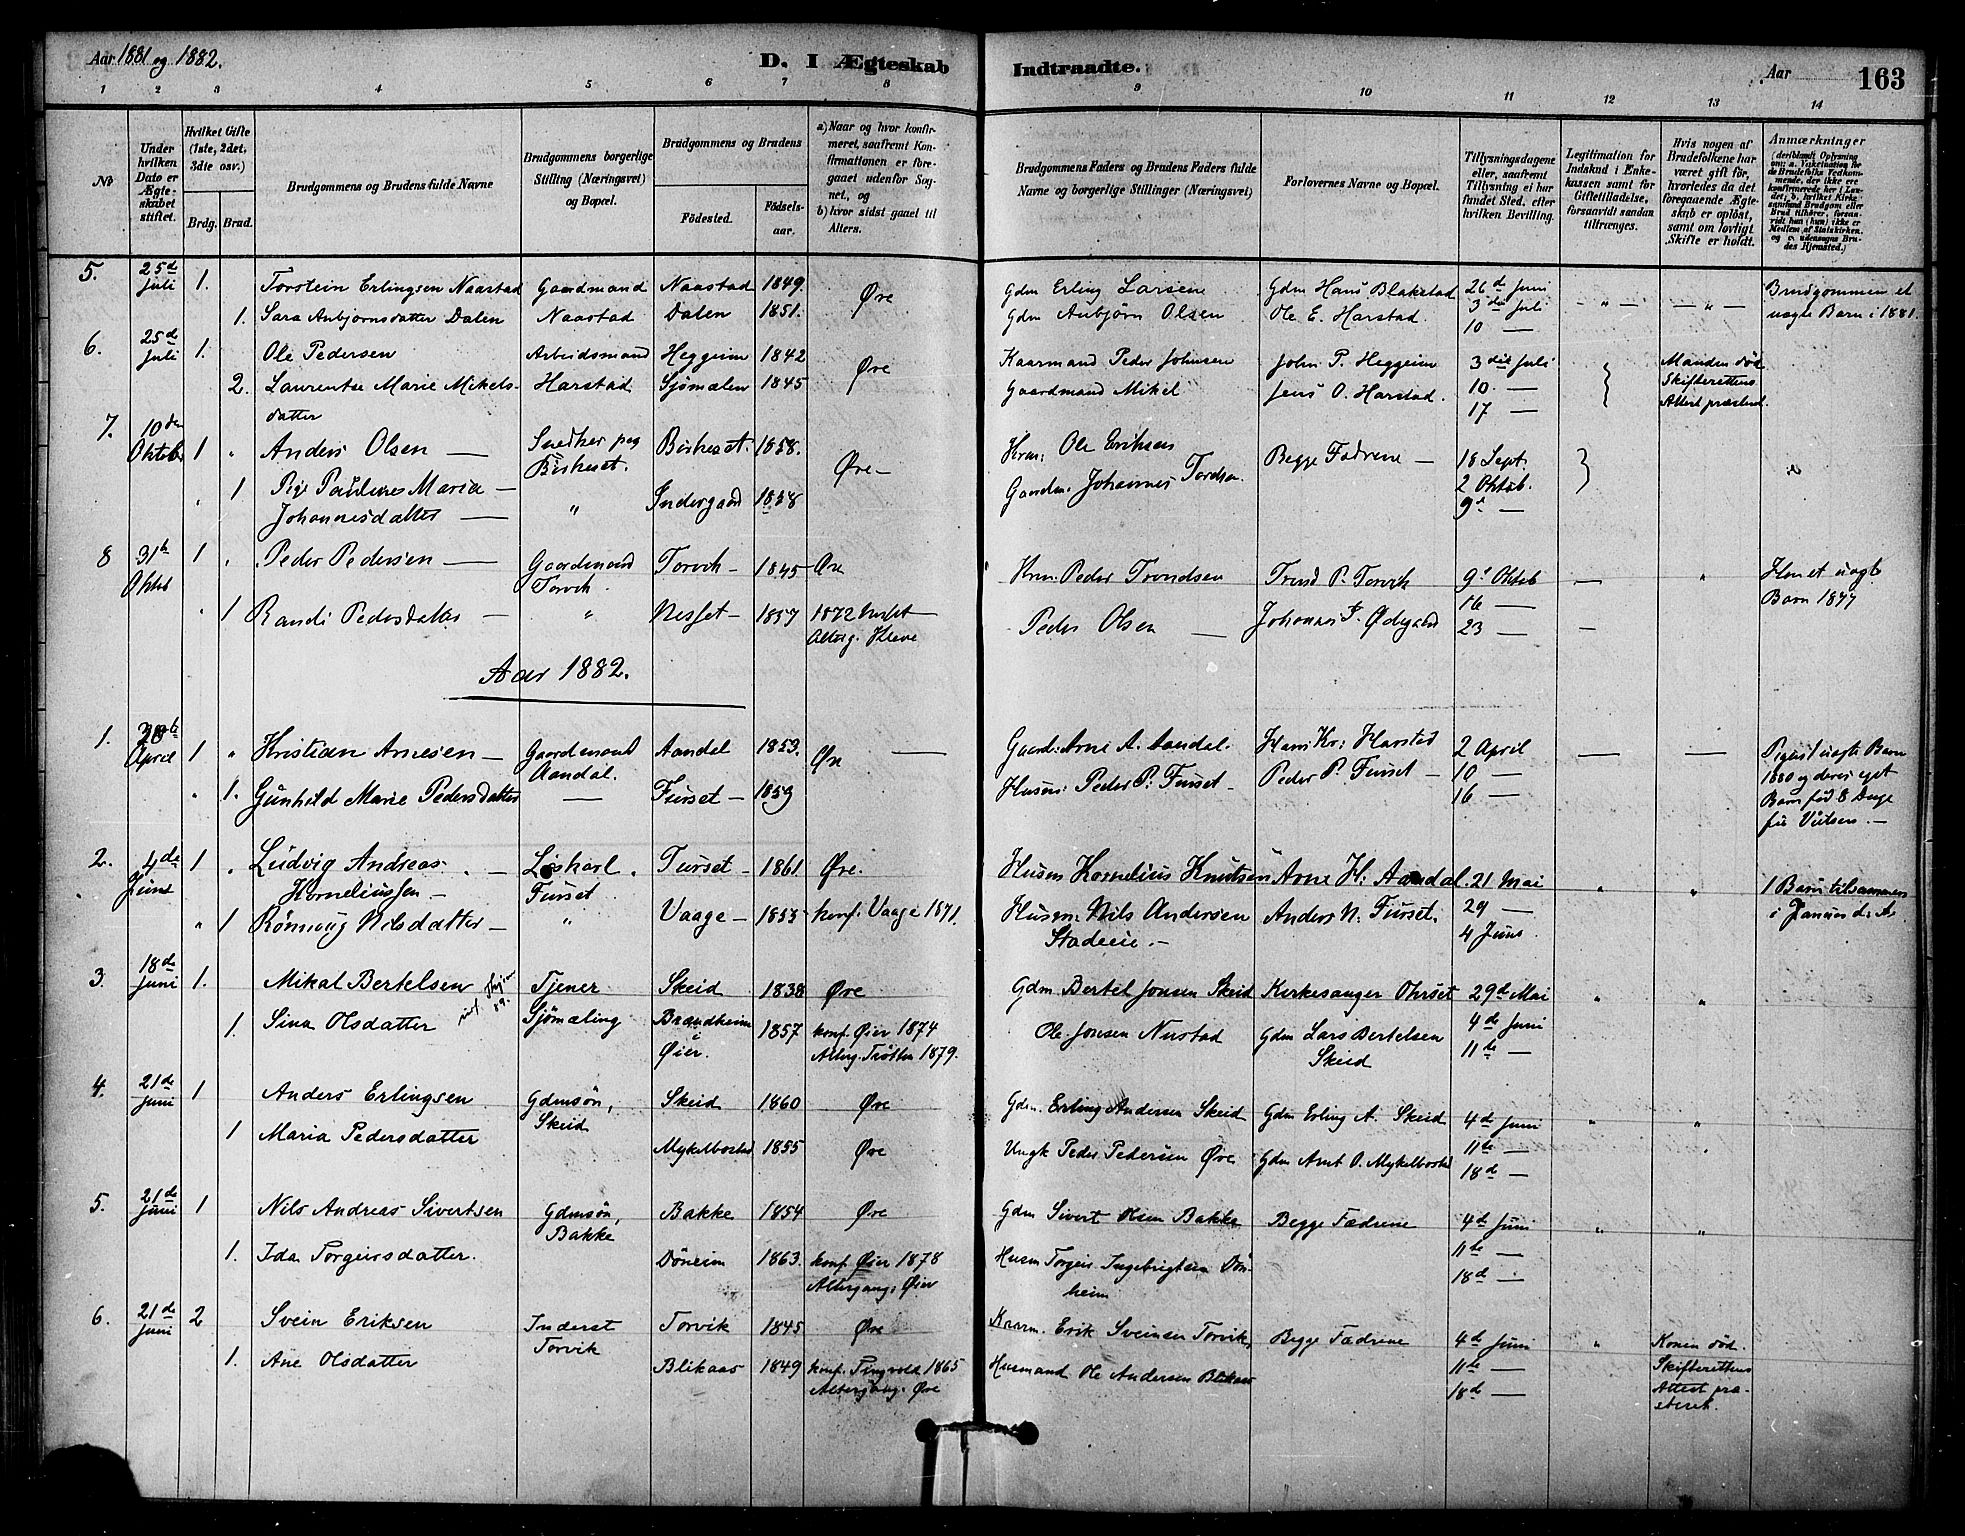 Aar 1881 og 1882.
D. I Ægteskab
Indtraadte.
Aar
163
1 2 3 4 5 6 7 8 9 10 11 12 13 14
No
Under hvilken Dato er Ægteskabet stiftet.
Hvilket Gifte (1ste, 2det, 3die osv.)
Brdg. Brud.
Brudgommens og Brudens fulde Navne
Brudgommens borgerlige Stilling (Næringsvei) og Bopæl.
Brudgommens og Brudens
Födested.
Födselsaar.
a) Naar og hvor konfirmeret, saafremt Konfirmationen er foregaaet udenfor Sognet, og
b) hvor sidst gaaet til Alters.
Brudgommens Faders og Brudens Faders fulde Navne og borgerlige Stillinger (Næringsvei)
Forlovernes Navne og Bopæl.
Tillysningsdagene eller, saafremt Tillysning ei har fundet Sted, efter hvilken Bevilling.
Legitimation for Indskud i Enkekassen samt for Giftetilladelse, forsaavidt saadan tiltrænges.
Hvis nogen af Brudefolkene har været gift för, hvorledes da det foregaaende Ægteskab er oplöst, samt om lovligt Skifte er holdt.
Anmærkninger
5. 25de Juli 1. Torstein Erlingsen Naastad Gaardmand Naastad 1849. Øre Gdm Erling Larsen Gdm Hans Blakstad 26de Juni Brudgommen et
1. Sara Anbjørnsdatter Dalen Naastad Dalen 1851. Gdm Anbjörn Olsen Ole E. Harstad. 3die Juli uægte Barn i 1881.
10 —
6. 25de Juli 1. Ole Pedersen Arbeidsmand Heggeim 1842 Øre Kaarmand Peder Johnsen John P. Heggeim 3die Juli Manden död
2. Laurentse Marie Mikelsdatter Harstad Sjömælen 1845 Gaardmand Mikel Jens O. Harstad. 10. — Skifterettens
17 — Attest præsterd.
7. 10de Oktob 1 Anders Olsen — Snedker paa Biskeset. Biskeset. 1858. Øre — Krm: Ole Eriksen Begge Fædrene — 18 Sept.
1 Pige Pauline Maria — Johannesdatter — " Indergaard 1858 Gaardm. Johannes Tordsen. 2 Oktob.
9de —
8 31te Oktob 1 Peder Pedersen — Gaardmand Torvik. Torvik — 1845 Øre Krm Peder Trondsen Trond P. Torvik 9de Oktob — Han et uægte
1 Randi Pedersdatter — " Nesset — 1857 1872 Nesset — Peder Olsen — Johannes P. Ødegaard 16 — Barn 1877
Alterg. Kleve 23 — —
Aar 1882.
1. April 1 " Kristian Arnesen — Gaardmand Aandal. Aandal 1853. Øre — Gaardm: Arne A. Aandal. Hans Kr: Harstad 2 April — —
" 1. Gunhild Marie Pedersdatter — Furset — 1859 Husm: Peder P. Furset — Peder P. Furset — 10 —
16 —
1880 og deres eget
Barn fød 8 Dage
før Vielsen. —
2. 4de Juni 1 Ludvig Andreas Korneliussen — Löskarl Furset Furset — 1861 Øre. Husm Kornelius Knutsen Arne H: Aandal. 21 Mai " " 1 Barn tilsammen
" 1 Rönnaug Nilsdatter — " Vaage — 1853 konf. Vaage 1871. Husm: Nils Andersen Stadeeie. — Anders N: Furset. 29 — i Januar d: A.
4 Juni
3. 18de Juni 1. Mikal Bertelsen Tjener Skeid 1838 Øre Gdm Bertel Jonsen Skeid Kirkesanger Ohrset 29de Mai " "
1. Sina Olsdatter Sjömæling Brandheim Øier. 1857 konf. Øier 1874 Ole Jonsen Nustad Gdm Lars Bertelsen Skeid 4de Juni
Alterg. Trötten 1879. 11te —
4. 21de Juni 1 Anders Erlingsen Gdmsön, Skeid Skeid 1860 Øre Gdm. Erling Andersen Skeid Gdm Erling A. Skeid 4de Juni " "
1 Maria Pedersdatter Myklebostad 1855 Øre Ungk Peder Pedersen Øre Gdm Arnt O. Myklebostd 11te —
18de —
5. 21de Juni 1 Nils Andreas Sivertsen Gdmsön, Bakke Bakke 1854 Øre Gdm Sivert Olsen Bakke Begge Fædrene 4de Juni " "
1. Ida Torgeirsdatter. Döneim 1863. konf. Øier 1878 Husm Torgeir Ingebrigtsen Dönheim 11te —
Altergang: Øier 18de —
6. 21de Juni 2 Svein Eriksen Inderst Torvik Torvik 1845 Øre Kaarm. Erik Sveinsen Torvik, Begge Fædrene 4de Juni " Konen död.
1. Ane Olsdatter Blikaas 1849 konf. Tingvold 1865 Husmand Ole Andersen Blikaas 11te — Skifterettens
Altergang. Øre 18de — Attest præsteret.